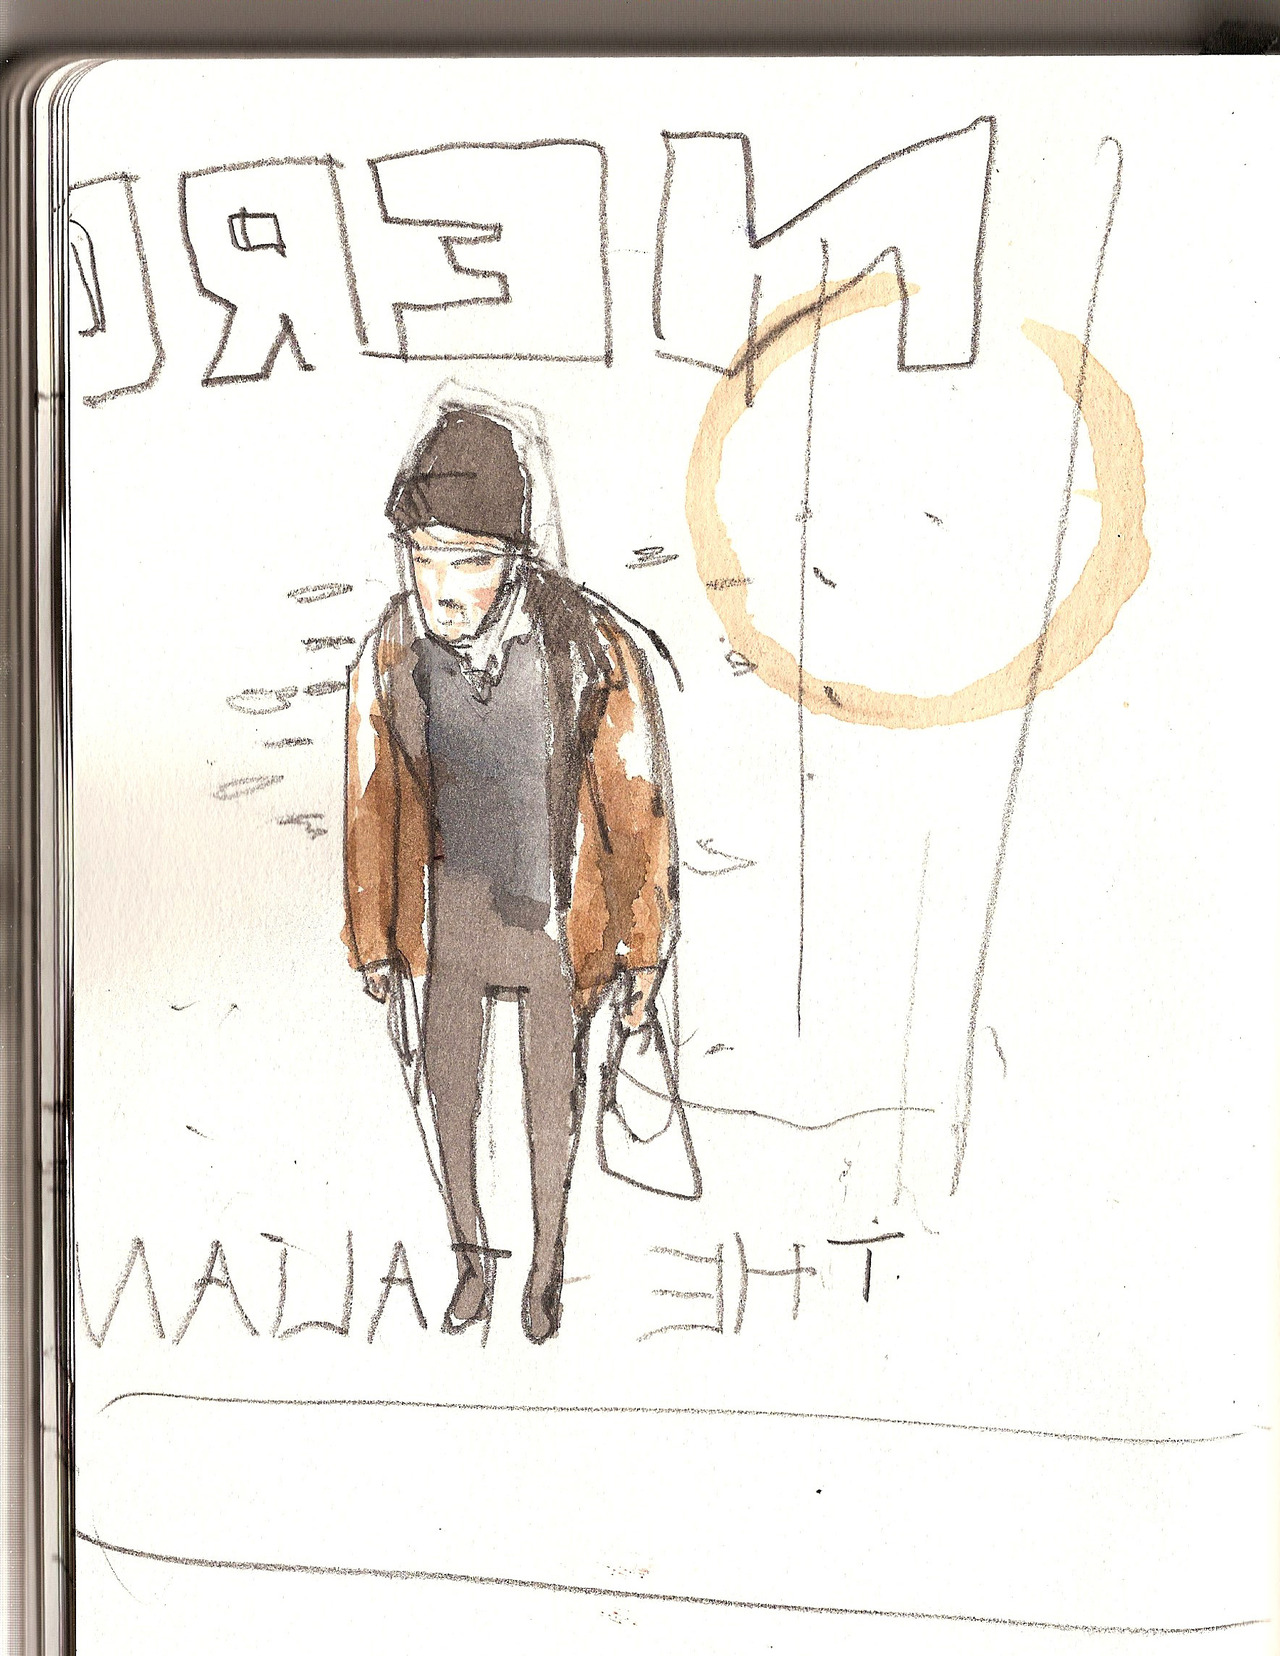 NERO
THE ITALIAN